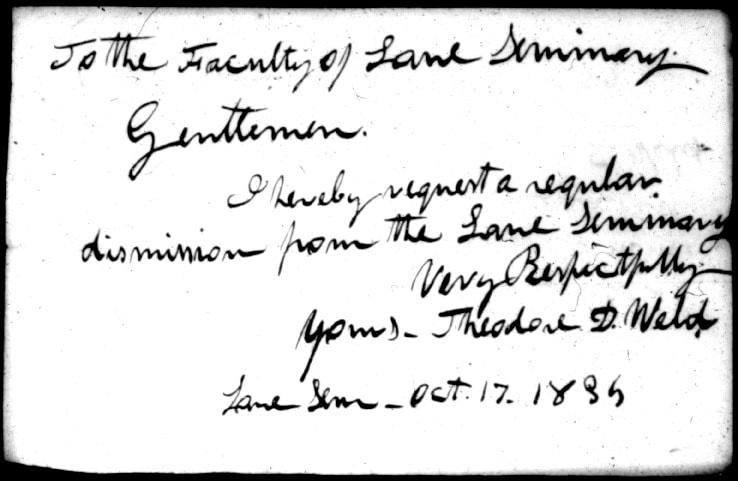 To the Faculty of Lane Seminary.
Gentlemen.
I hereby request a regular
dismission from the Lane Seminary
Very Respectfully
Yours - Theodore D. Weld
Lane Sem - Oct. 17. 1834